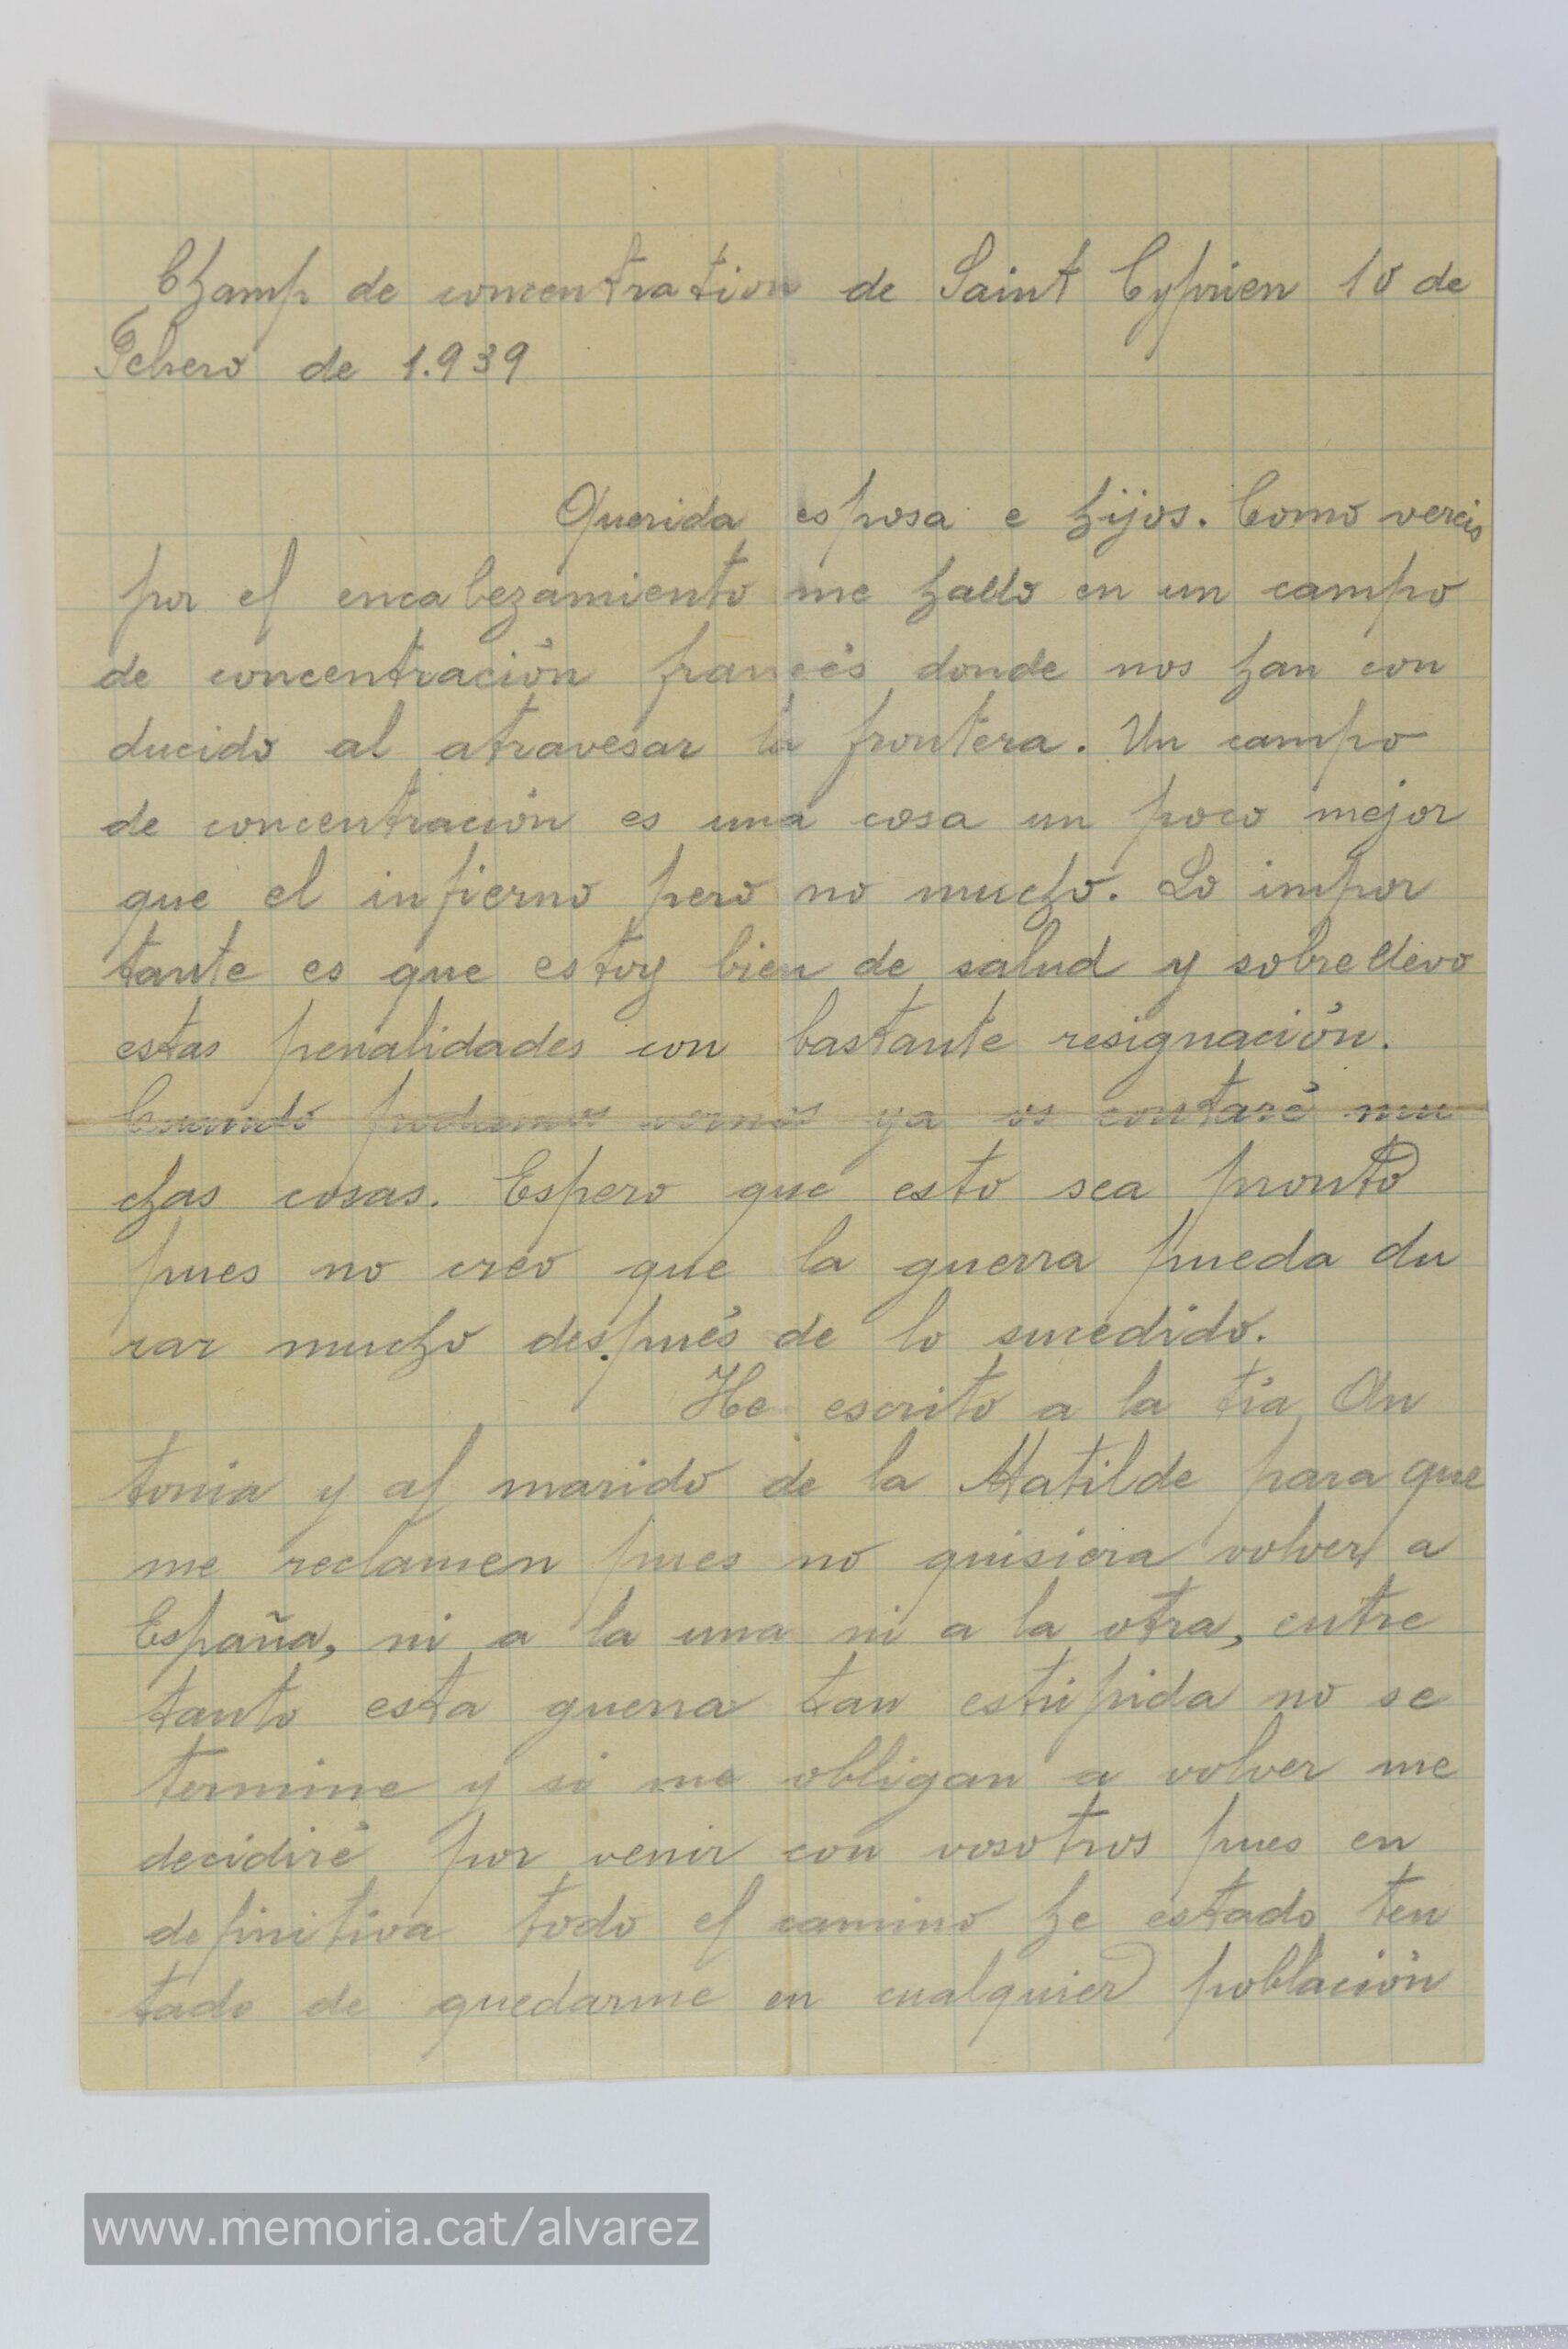 Champ de concentration de Saint Cyprien 10 de
Febrero de 1.939
Querida esposa e hijos. Como vereis
por el encabezamiento me hallo en un campo
de concentración francés donde nos han con
ducido al atravesar la frontera. Un campo
de concentración es una cosa un poco mejor
que el infierno pero no mucho. Lo impor
tante es que estoy bien de salud y sobrellevo
estas penalidades con bastante resignación.
Cuando podamos vernos ya os contaré mu
chas cosas. Espero que esto sea pronto
pues no creo que la guerra pueda du
rar mucho después de lo sucedido.
He escrito a la tía An
tonia y al marido de la Matilde para que
me reclamen pues no quisiera volver a
España, ni a la una ni a la otra, entre
tanto esta guerra tan estúpida no se
termine y si me obligan a volver me
decidiré por venir con vosotros pues en
definitiva todo el camino he estado ten
tado de quedarme en cualquier población
www.memoria.cat/alvarez